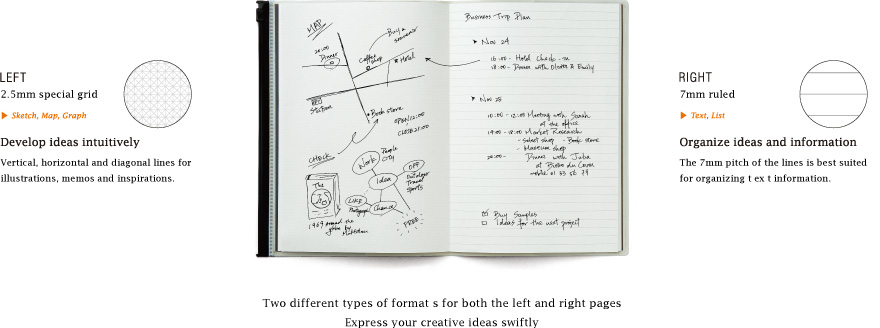 LEFT
2.5mm special grid
Sketch, Map, Graph
Develop ideas intuitively
Vertical, horizontal and diagonal lines for
illustrations, memos and inspirations.
MAP
20:00
Dinner
Coffee
shop
Buy a
souvenir
Hotel
Station
Book store
OPEN 12:00
CLOSE 21:00
CHECK
Work
People
City
OFF
Outdoor
Travel
Sports
Idea
LIKE
Photograph
Chance
FREE
The
1969 around the
globe by
Business Trip Plan
Nov 24
16:00 - Hotel Check-in
18:00 - Dinner with & Emily
Nov 25
10:00 - 12:00 Meeting with Sarah
at the office
14:00 - 18:00 Market Research
- select shop - Book store
- Museum shop
20:00 - Dinner with Julia
at Bistro du
mobile 01 33 56 29
Buy Samples
Ideas for the next project
RIGHT
7mm ruled
Text, List
Organize ideas and information
The 7mm pitch of the lines is best suited
for organizing t ex t information.
Two different types of format s for both the left and right pages
Express your creative ideas swiftly